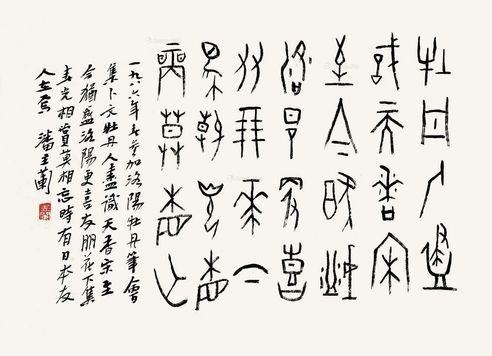 牡丹人盡
識天香宗
至今猶盛
洛陽更喜
友朋花下
集春光相
賞莫相忘
一九八六年春參加洛陽牡丹筆會
集卜文牡丹人盡識天香宗至
今猶盛洛陽更喜友朋花下集
春光相賞莫相忘時有日本友
人在席 潘主蘭